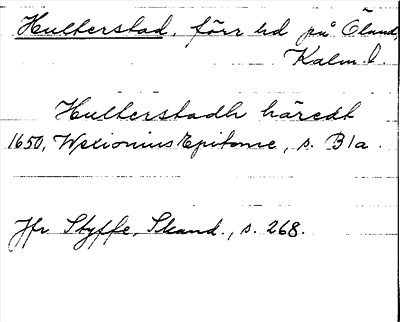 Hulterstad, förr hd på Öland,
Kalm. l.
Hulterstadh häredt
1650, Wexionius Epitome, s. B1a.
Jfr Styffe, Skand., s. 268.